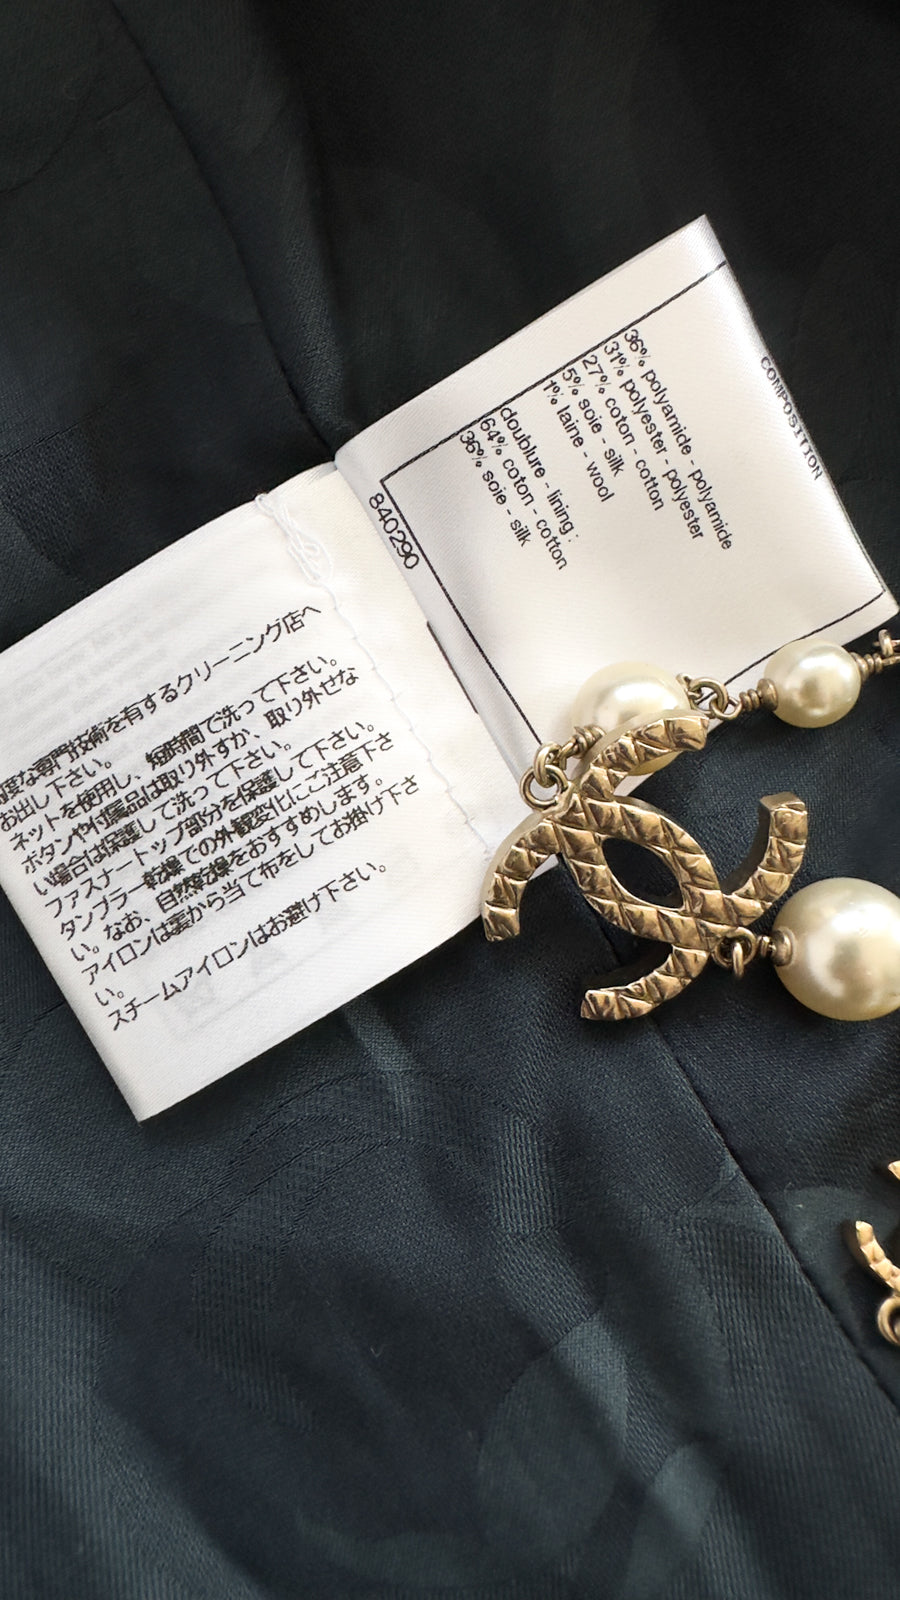 COMPOSITION
36% polyamide - polyamide
31% polyester - polyester
27% coton - cotton
5% soie - silk
1% laine - wool
doublure - lining :
64% coton - cotton
36% soie - silk
840290
度な専門技術を有するクリーニング店へ
お出し下さい。
ネットを使用し、短時間で洗って下さい。
ボタンや付属品は取り外すか、取り外せな
い場合は保護して洗って下さい。
ファスナートップ部分を保護して下さい。
タンブラー乾燥での外観変化にご注意下さ
い。なお、自然乾燥をおすすめします。
アイロンは裏から当て布をしてお掛け下さ
い。
スチームアイロンはお避け下さい。